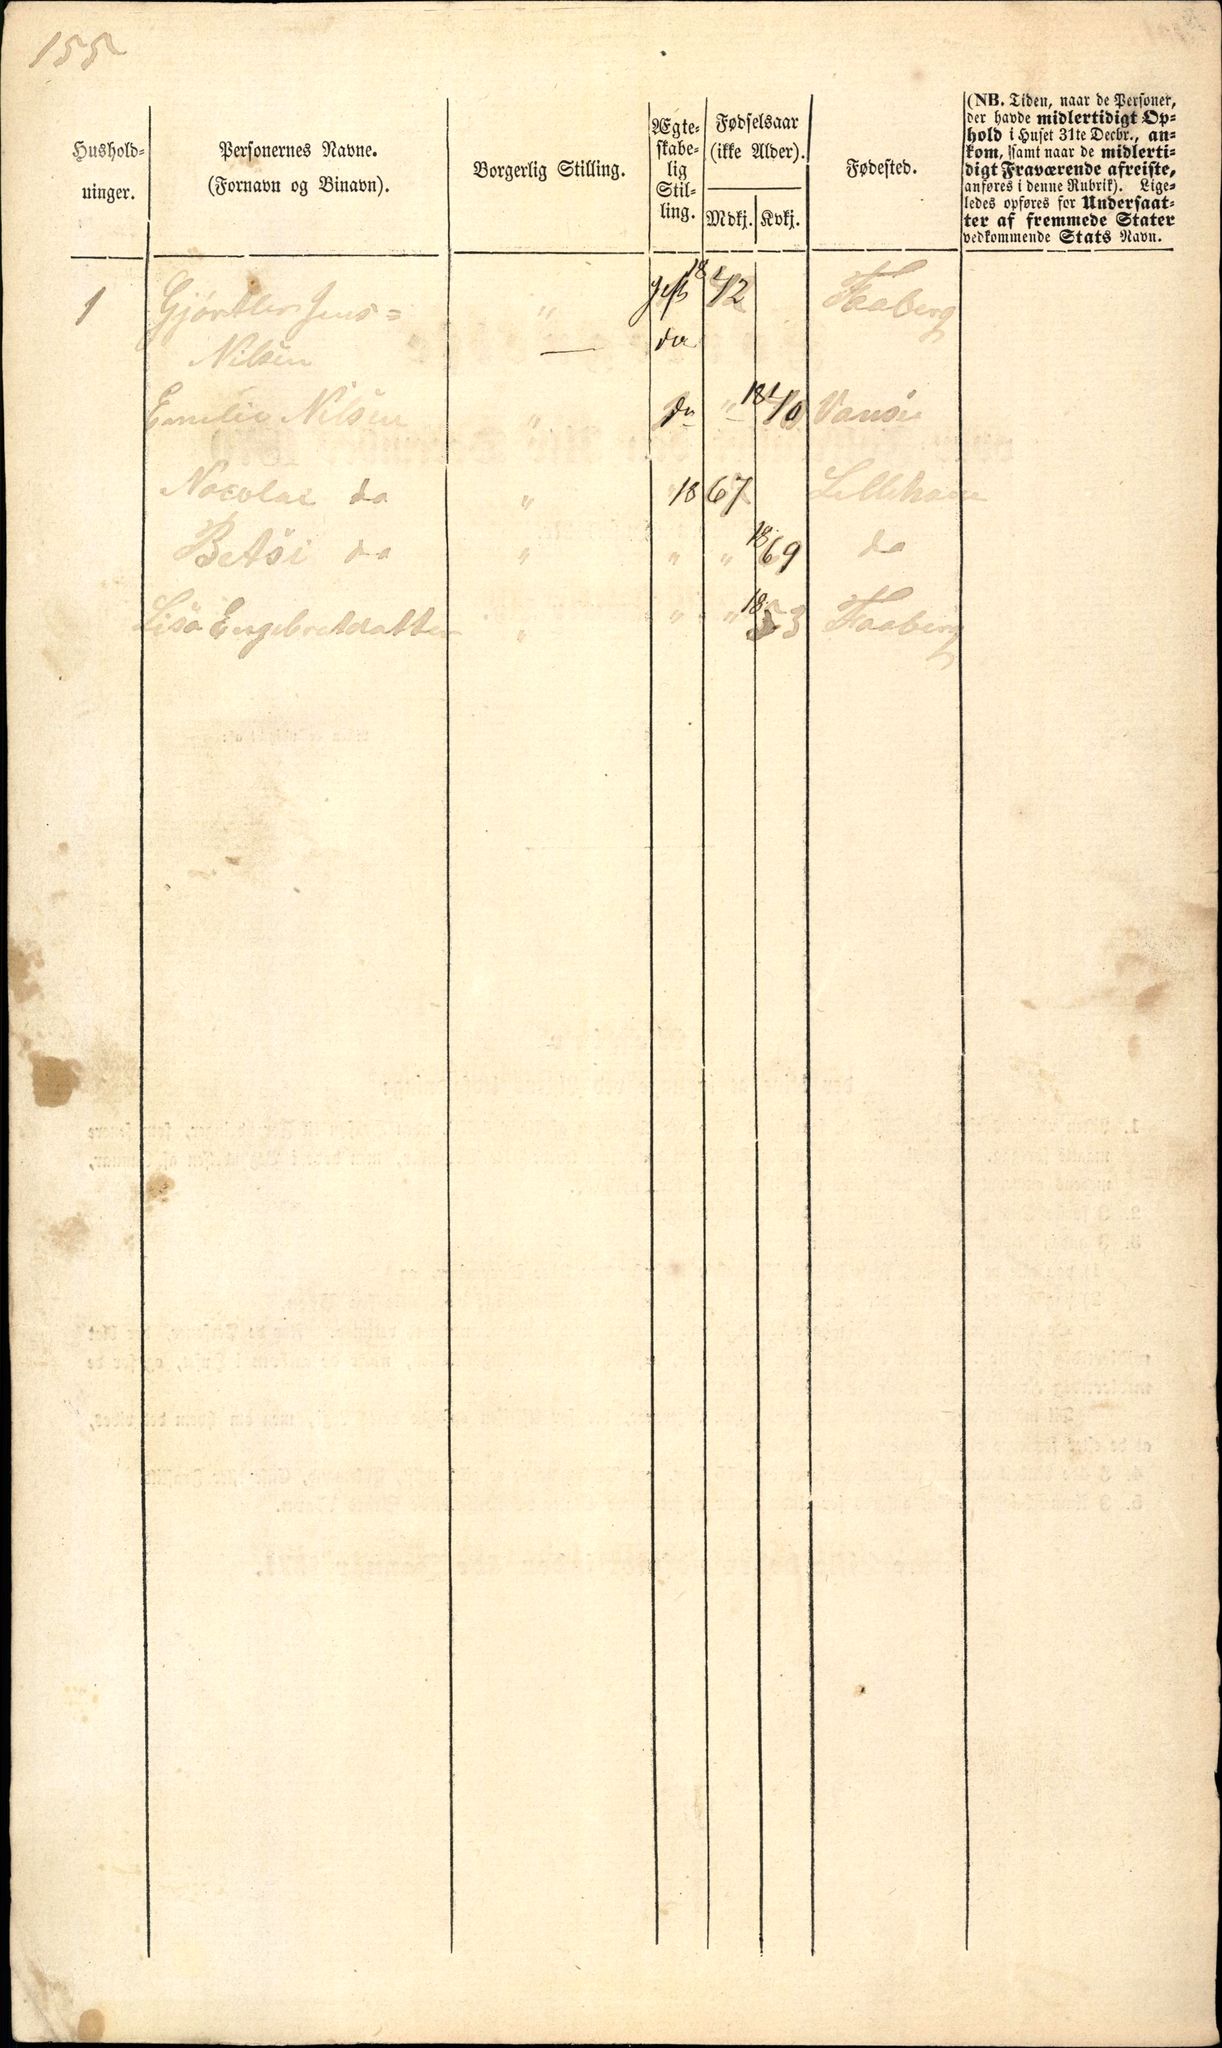 155
Hushold-
ninger.
Personernes Navne.
(Fornavn og Binavn).
Borgerlig Stilling.
Ægte-
skabe-
lig
Stil-
ling.
Fødselsaar
(ikke Alder).
Mdkj. Kvkj.
Fødested.
(NB. Tiden, naar de Personer,
der havde midlertidigt Op-
hold i Huset 31te Decbr., an-
kom, samt naar de midlerti-
digt Fraværende afreiste,
anføres i denne Rubrik). Lige-
ledes opføres for Undersaat-
ter af fremmede Stater
vedkommende Stats Navn.
1 Gjørtler Jens= " gift 1842 Faaberg
Nilsen — do
Emelie Nilsen " do " 1840 Vansø
Nocolai do " 1867
Betsi do " " " 1869 do
Lisa Engebretdatter " " " 1853 Faaberg